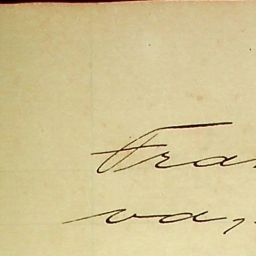 Fra
va,